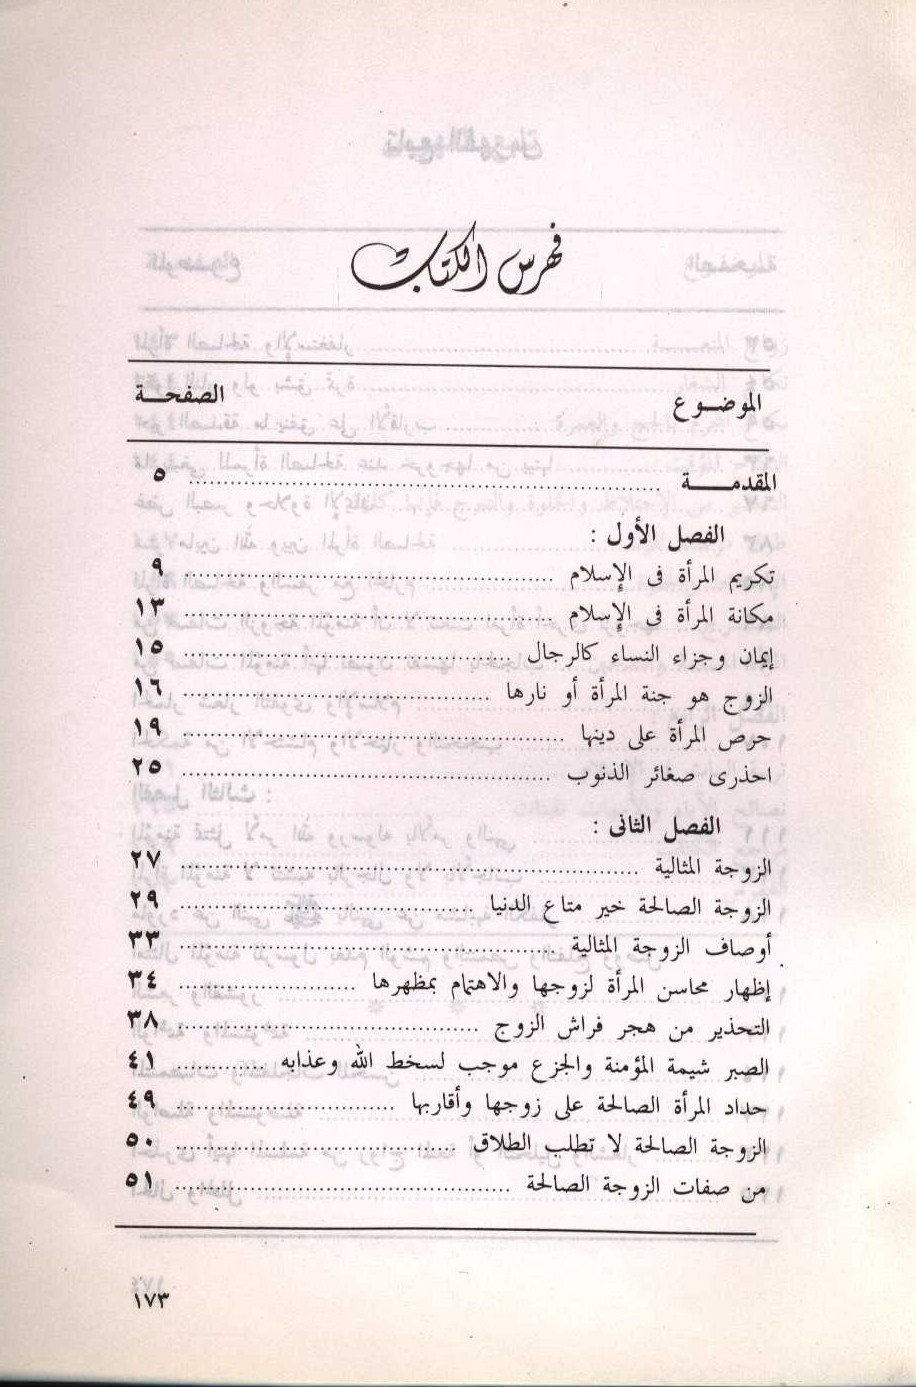 فهرس الكتاب
الموضوع الصفحة
المقدمة ٥
الفصل الأول :
تكريم المرأة فى الإسلام ٩
مكانة المرأة فى الإسلام ١٣
إيمان وجزاء النساء كالرجال ١٥
الزوج هو جنة المرأة أو نارها ١٦
حرص المرأة على دينها ١٩
احذرى صغائر الذنوب ٢٥
الفصل الثانى :
الزوجة المثالية ٢٧
الزوجة الصالحة خير متاع الدنيا ٢٩
أوصاف الزوجة المثالية ٣٣
إظهار محاسن المرأة لزوجها والاهتمام بمظهرها ٣٤
التحذير من هجر فراش الزوج ٣٨
الصبر شيمة المؤمنة والجزع موجب لسخط الله وعذابه ٤١
حداد المرأة الصالحة على زوجها وأقاربها ٤٩
الزوجة الصالحة لا تطلب الطلاق ٥٠
من صفات الزوجة الصالحة ٥١
١٧٣